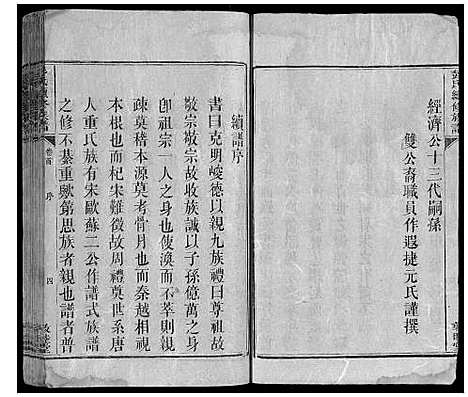 經濟公十三代嗣孫
雙公裔職員作遐捷元氏謹撰
續譜序
書曰克明峻德以親九族禮曰尊祖故
敬宗敬宗故收族誠以子孫億萬之身
即祖宗一人之身也使渙而不萃則親
疎莫稽本源莫考骨月也而秦越相視
本末也而杞宋難徵故周禮奠世系唐
人重氏族有宋歐蘇二公作譜式族譜
之修不綦重歟第思族者親也譜者普
卷首
序
四
氏續修族譜